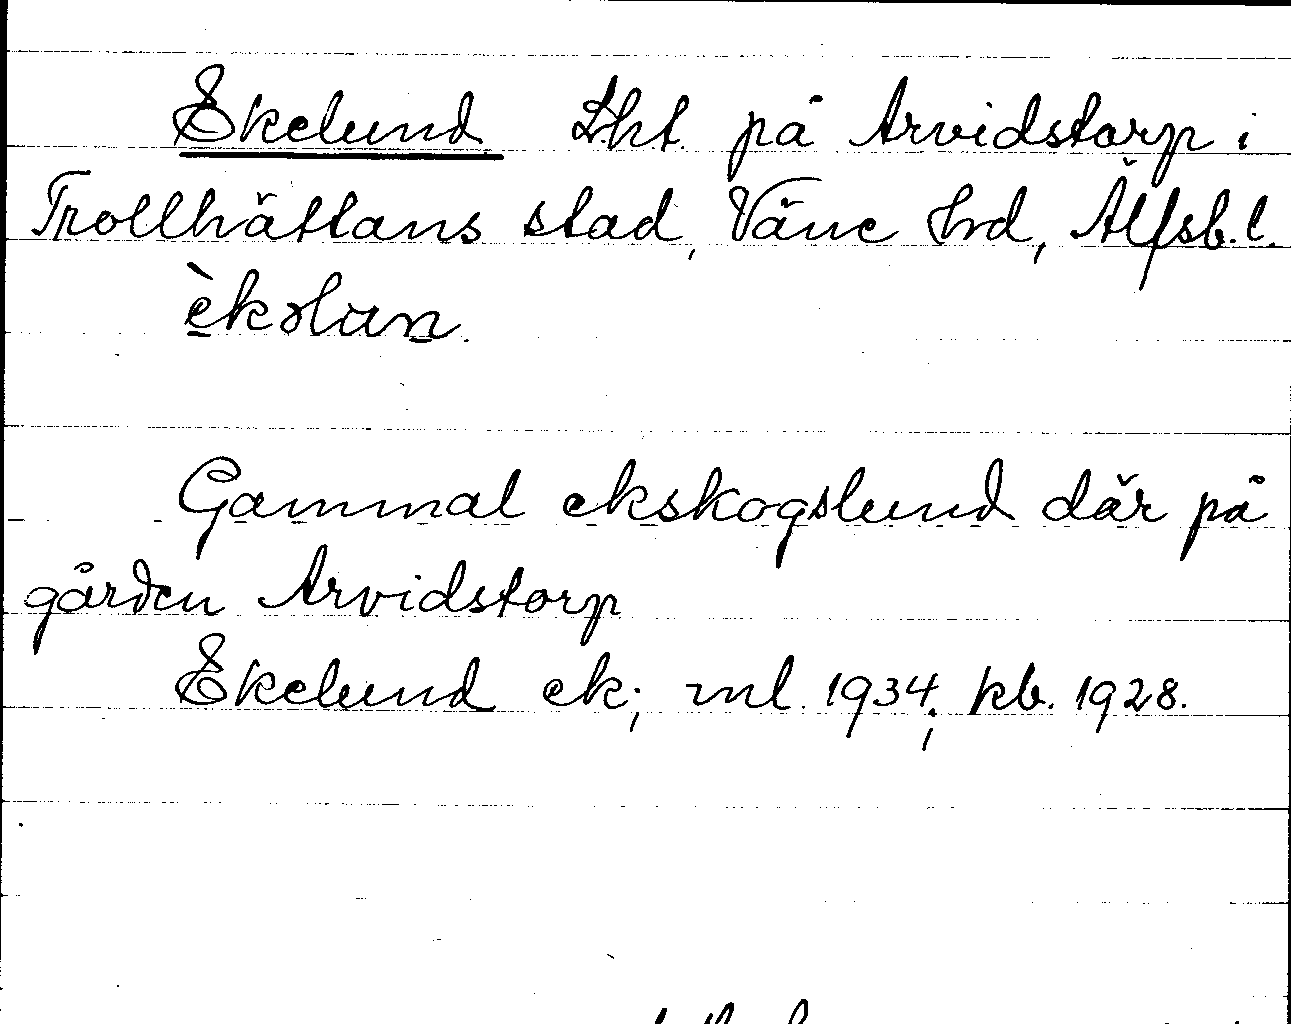 Ekelund Lht. på Arvidstorp i
Trollhättans stad, Väne hrd, Älfsb. l.
èkəlun.
Gammal ekskogslund där på
gården Arvidstorp
Ekelund ek; ml. 1934; kb. 1928.